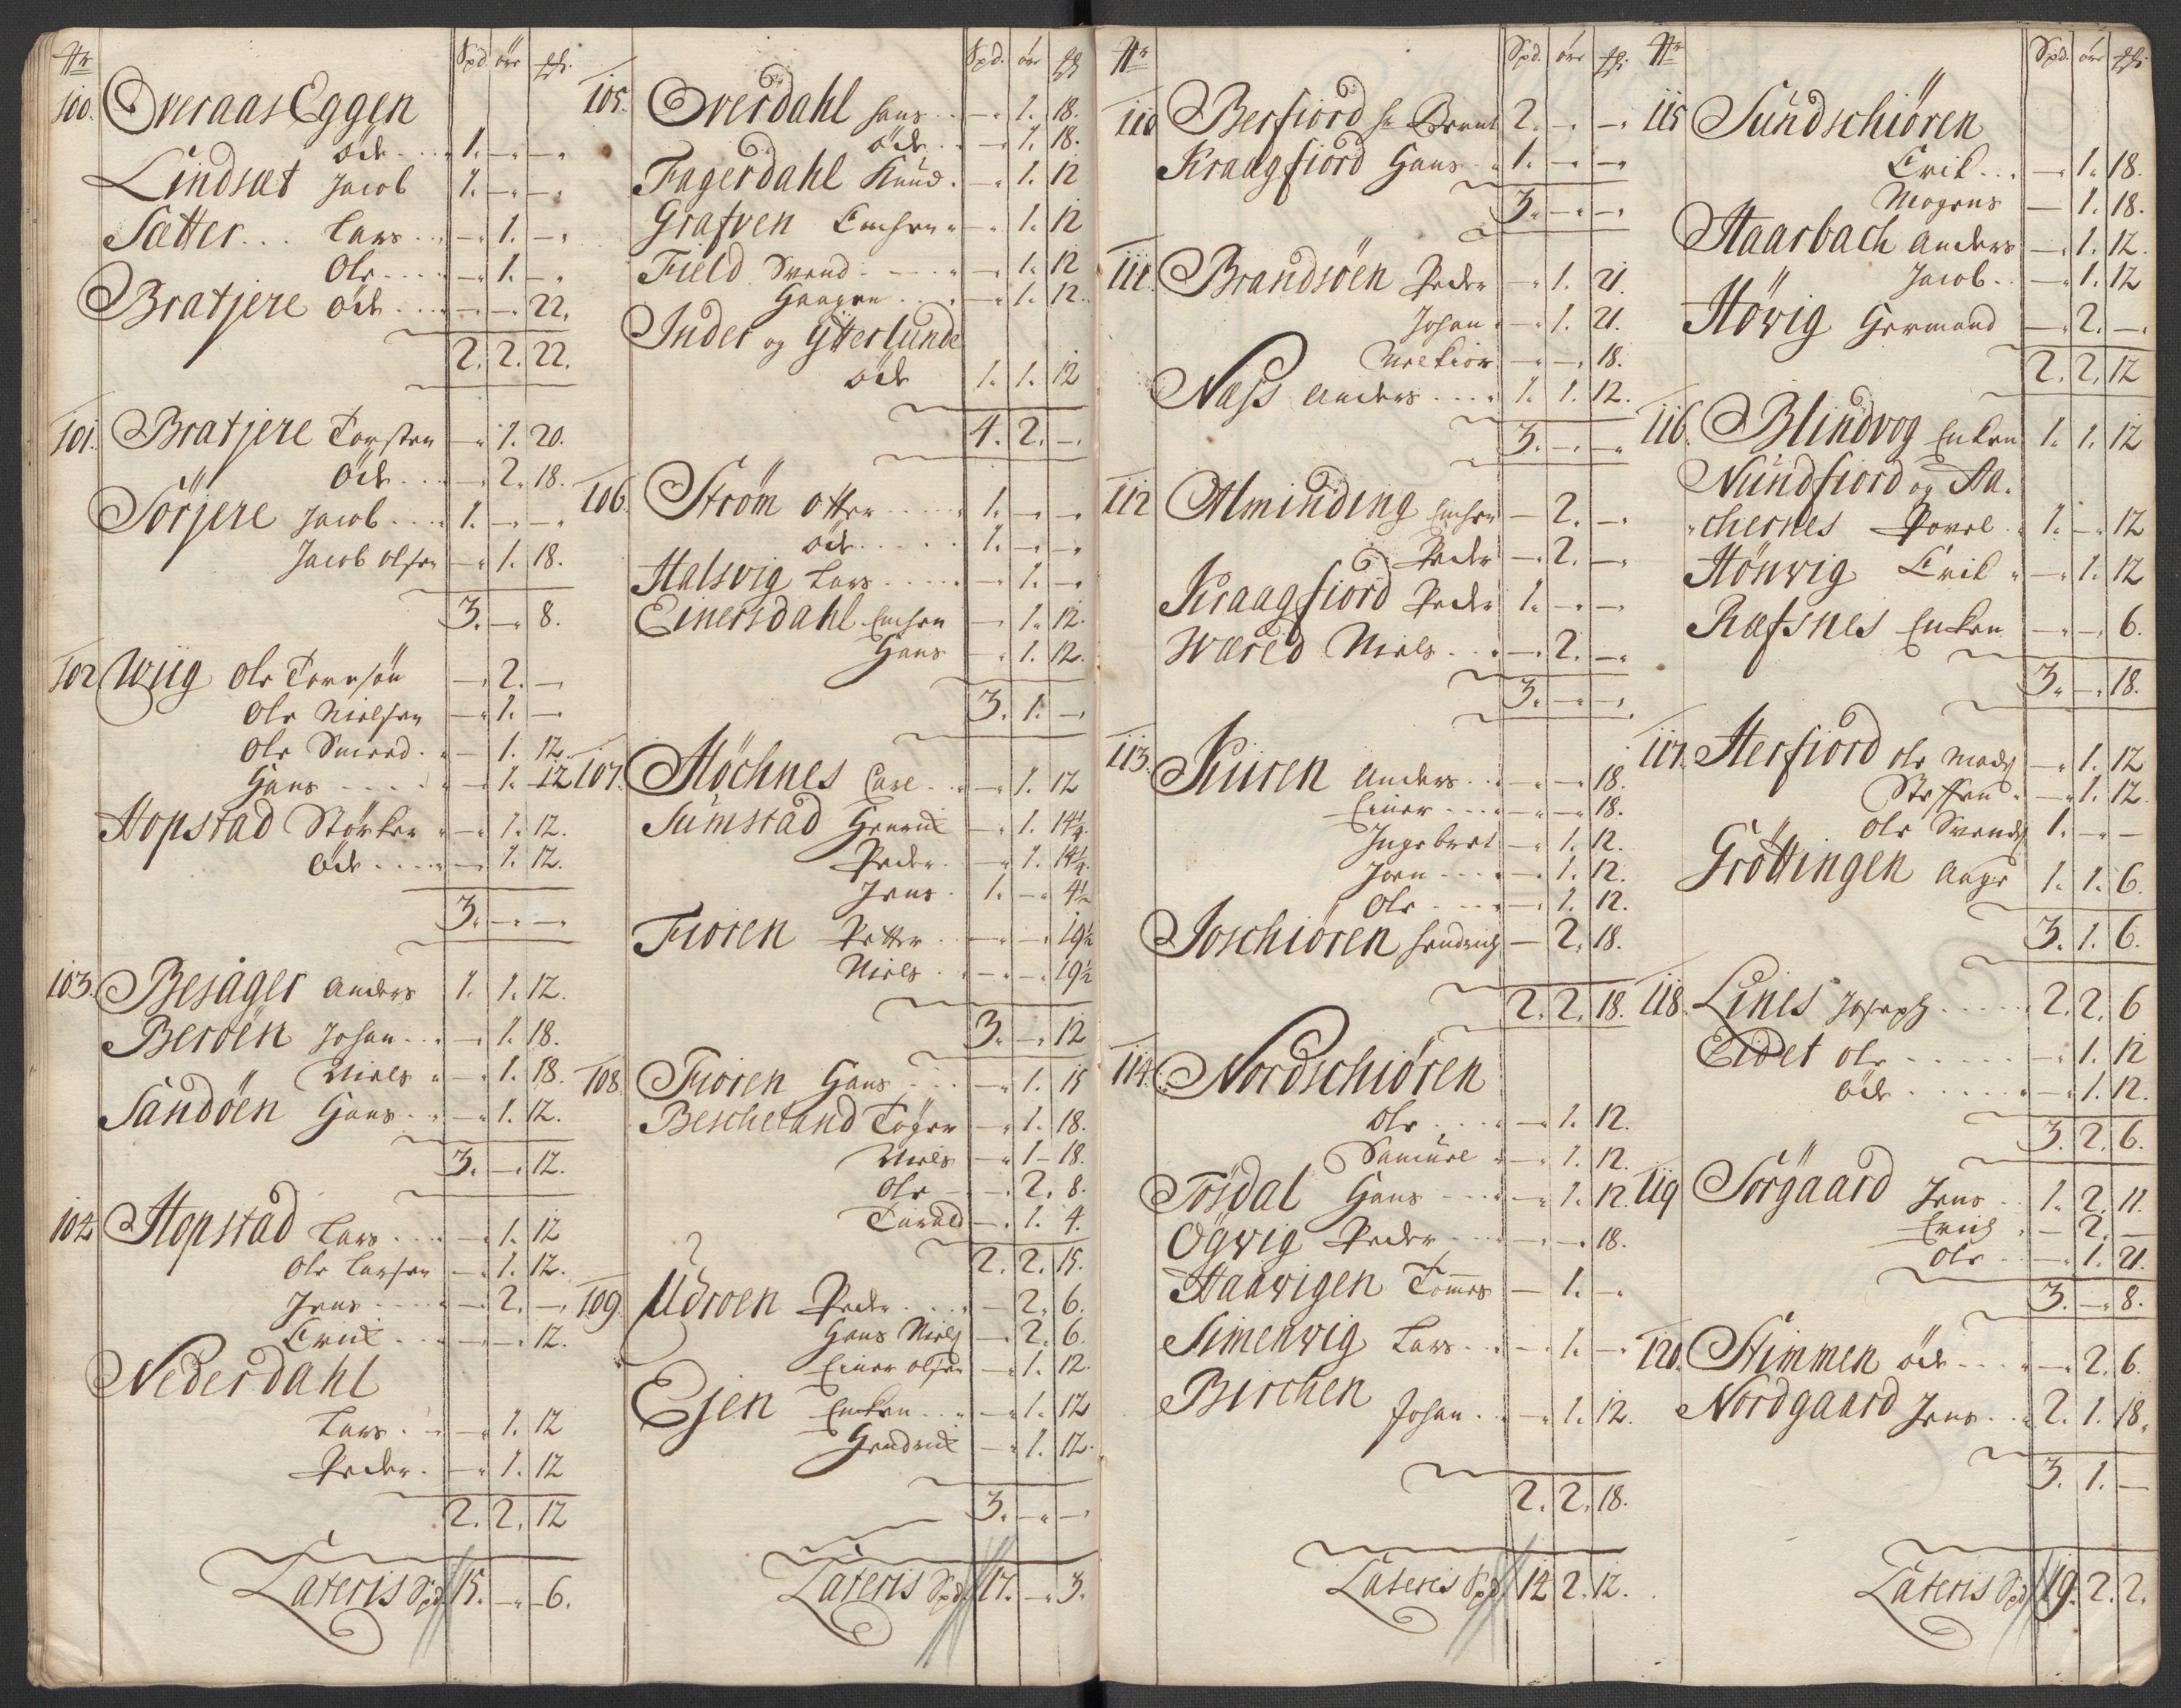 Nr Spd. öre ß.
100. Overaas Eggen
öde . . . 1. — —
Lindsæt Jacob 1. — —
Sætter . . . Lars . . — 1. —
Ole . . . . — 1. —
Bratjere öde . . . — — 22.
2. 2. 22.
101. Bratjere Torsten — 1. 20.
öde . . . — 2. 18.
Sörjere Jacob . . . 1. — —
Jacob olsen — 1. 18.
3. — 8.
102 Wiig Ole — 2. —
Ole Nielsen — 1. —
Ole — 1. 12.
Hans . . . . — 1. 12
Hopstad Störker — 1. 12.
öde . . . . — 1. 12.
3. — —
103. Besager Anders 1. 1. 12.
Beröen Johan . . . — 1. 18.
Niels — 1. 18.
Sandöen Hans . . — 1. 12.
3. — 12.
104 Hopstad Lars . . . — 1. 12
Ole Larsen — 1. 12.
Jens . . . . — 2. —
Erick . . . — — 12.
Nederdahl
Lars . . — 1. 12
Peder . — 1. 12
2. 2. 12
Lateris Spd. 15. — 6.
Spd. öre ß
105. Overdahl Hans . . — 1. 18.
öde . . — 1. 18.
Fagerdahl Knud . — 1. 12
Grafven Enchen — 1. 12
Field Svend . . . . — 1. 12
Haagen . . . — 1. 12.
Inder og Ytterlunde
öde 1. 1. 12
4. 2. —
106. Strøm otter . . . . 1. — —
öde . . . . 1. — —
Halsvig Lars . . . . — 1. —
Einersdahl Enchen — 1. 12.
Hans — 1. 12.
3. 1. —
107. Höchnes Carl . . — 1. 12
Sumstad Henrich — 1. 14½
Peder . — 1. 14½
Jens . 1. — 4½
Fioren Petter . — — 19½
Niels . — — 19½
3. — 12
108. Fioren Hans . . . — 1. 15
Bescheland Töger — 1. 18.
Niels — 1 — 18.
Ole — — 2. 8.
— 1. 4.
2. 2. 15.
109. Udroen Peder . . . . — 2. 6.
Hans Niels — 2. 6.
Einer olsen — 1. 12.
Ejen Encken . . . — 1. 12
Hendrich — 1. 12.
3. — —
Lateris Spd. 17. — 3.
Nr Spd. öre ß.
110 Berfiord Hr Brent 2. — —
Kraagfiord Hans 1. — —
3. — —
111. Brandsöen Peder — 1. 21.
Johan — 1. 21.
— — 18.
Næss Anders . . . . 1. 1. 12.
3. — —
112 Alminding Enchen — 2. —
Peder — 2. —
Kraagfiord Peder 1. — —
Wæred Niels . . . — 2. —
3. — —
113. Kiiren Anders . . . — — 18.
Einer . . . — — 18.
Ingebret — 1. 12.
Joen . . . — 1. 12.
Ole . . . — 1. 12.
Joschiören Hendrich — 2. 18.
2. 2. 18.
114. Nordschiören
Ole . . . — 1. 12.
Samuel — 1. 12.
Tösdal Hans . . . — 1. 12.
Ogvig Peder . . . — — 18.
Haavigen Tomes — 1. —
Simenvig Lars . . . — 1. —
Birchen
Johan . . — 1. 12.
2. 2. 18.
Lateris Spd. 14 2. 12.
Nr Spd. öre ß.
115 Sundschiören
Erik . . . — 1. 18.
Mogens — 1. 18.
Haarbach Anders — 1. 12.
Jacob . . — 1. 12
Hövig Hermand — 2. —
2. 2. 12
116. Blindvog Encken 1. 1. 12
Nundfiord og Aa-
chernes Povel . 1. — 12
Hönvig Erik — 1. 12
Ræfsnes Encken — — 6.
3. — 18.
117. Herfiord Ole Mads — 1. 12
Steffen — 1. 12.
Ole Svends 1. — —
Gröttingen Aage 1. 1. 6.
3. 1. 6.
118. Lines Joseph . . . . 2. 2. 6
Eidet Ole . . . . — 1. 12
öde . . . . — 1. 12.
3. 2. 6.
119 Sörgaard Jens . . 1. 2. 11.
Erich — 2. —
Ole . . — 1. 21.
3. — 8.
120. Stimmen öde . . . — 2. 6.
Nordgaard Jens . . 2. 1. 18.
3. 1. —
Lateris Spd. 19. 2. 2.